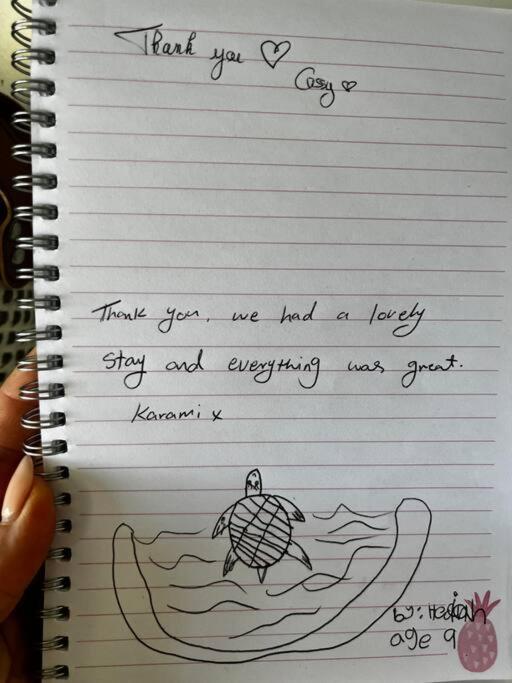 Thank you ♡
Cassy ♡
Thank you, we had a lovely
stay and everything was great.
Karami x
by:
age 9